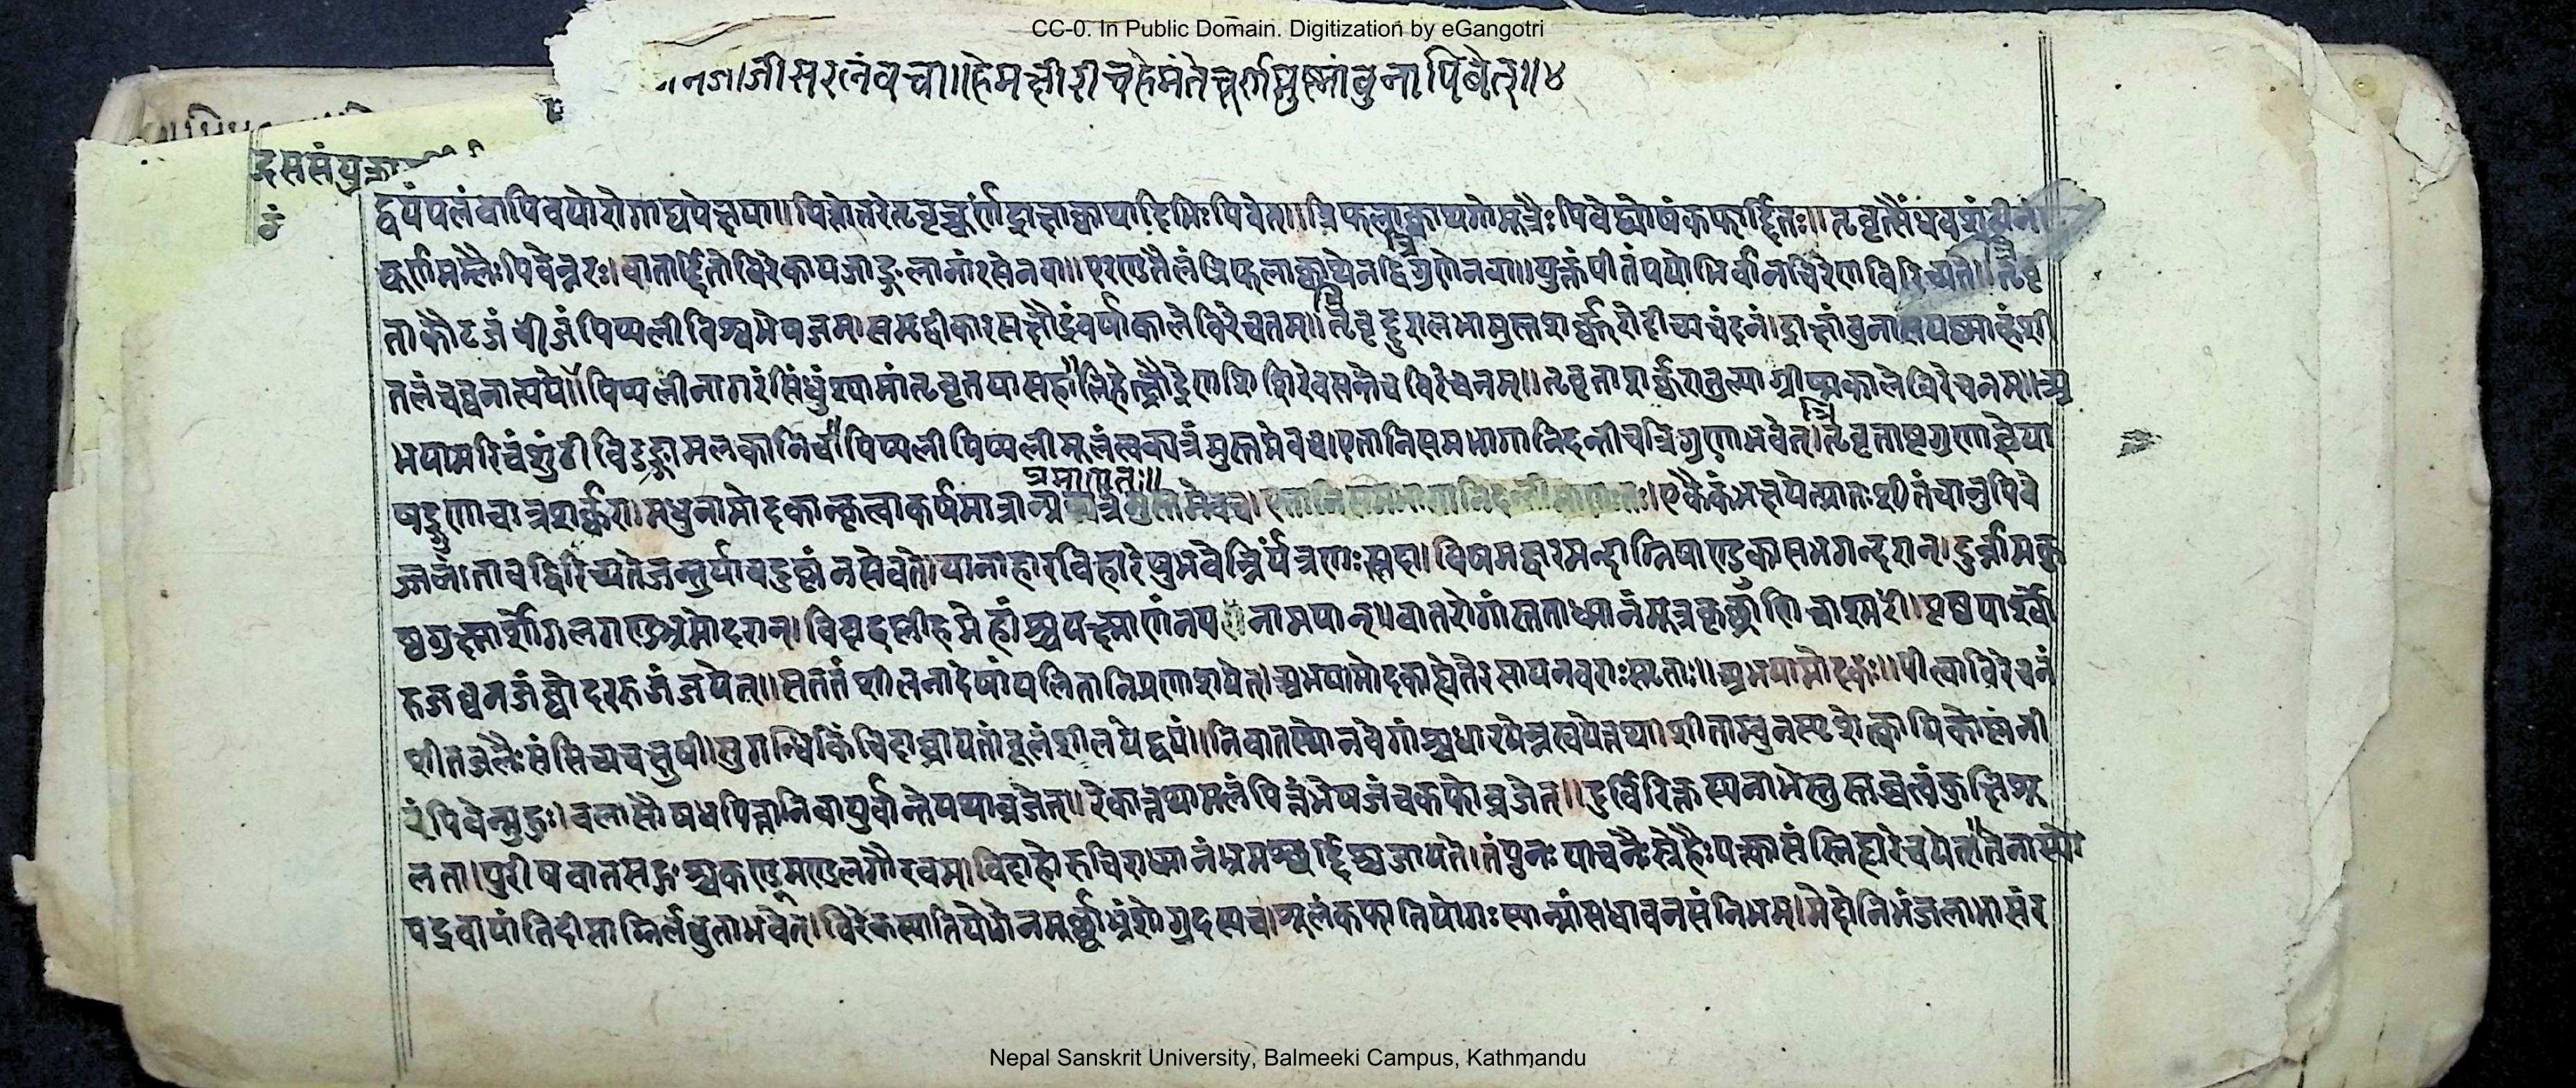 CC-0. In Public Domain. Digitization by eGangotri
जाजीसरलंवचा॥हेमक्षीरीचहेमंतेचूर्णमुष्णांबुनापिबेत्॥४
दससंयुक्ता
द्वयंपलंवापिवयोरोगाद्यपेक्षया॥पित्तोत्तरेत्रवृच्चूर्णंद्राक्षाक्वाथादिभिःपिबेत्॥त्रिफलाक्वाथगोमूत्रैःपिबेद्व्योषंकफार्द्दितः॥त्रवृत्सैंधवशुंठीनां
चूर्णमम्लैःपिबेन्नरः।वातार्द्दितोविरेकायजाङ्गलानांरसेनवा॥एरण्डतैलंत्रिफलाक्वाथेनद्विगुणेनवा॥युक्तंपीतंपयोभिर्वानचिरेणविरिच्यते॥त्रवृ
ताकौटजंबीजंपिप्पलीविश्वभेषजम्।समृद्वीकारसक्षौद्रंवर्षाकालेविरेचनम्॥त्रवृद्दुरालभामुस्तशर्क्करोदीच्यचंदनं।द्राक्षांबुनासयष्ट्याह्वंशी
तलंचघनात्यये॥पिप्पलीनागरंसिंधुंश्यामांत्रवृतयासह॥लिहेत्क्षौद्रेणशिशिरेवसन्तेचविरेचनम्॥त्रवृताशर्क्करातुल्याग्रीष्मकालेविरेचनम्॥अ
भयामरिचंशुंठीविडङ्गामलकानिच॥पिप्पलीपिप्पलीमूलंत्वक्पत्रंमुस्तमेवच।एतानिसमभागानिदन्तीचत्रिगुणाभवेत्।त्रवृताष्टगुणाज्ञेया
प्रमाणतः॥
षड्गुणाचात्रशर्क्करा।मधुनामोदकान्कृत्वाकर्षमात्रान् एकैकंभक्षयेत्प्रातःशीतंचानुपिबे
ज्जलं।तावद्विरिच्यतेजन्तुर्यावदुष्णंनसेवते।पानाहारविहारेषुभवेन्निर्यंत्रणःसदा।विषमज्वरमन्दाग्निपाण्डुकासभगन्दरान्।दुर्न्नामकु
ष्ठगुल्मार्शोगलगण्डभ्रमोदरान्।विदाहप्लीहमेहांश्चयक्ष्माणंनयनामयान्॥वातरोगांस्तताध्मानंमूत्रकृछ्राणिचाश्मरीं।पृष्ठपार्श्वो
रुजघनजंघोदररुजंजयेत्॥सततंशीलनादेषांपलितानिप्रणाशयेत्।अभयामोदकाह्येतेरसायनवराःस्मृताः॥अभयामोदकः॥पीत्वाविरेचनं
शीतजलैःसंसिच्यचक्षुषी।सुगन्धिकिंचिदाघ्रायतांबूलंशीलयेद्वयं॥निवातस्थोनवेगांश्चधारयेन्नस्वपेत्तथा।शीताम्बुनस्पृशेत्क्वापिकोष्णंनी
रंपिबेन्मुहुः।बलासौषधपित्तानिवायुर्वान्तेयथाव्रजेत्॥रेकात्तथामलंपित्तंभेषजंचकफोव्रजेत्॥दुर्विरिक्तस्यनाभेस्तुस्तब्धत्वंकुक्षिशू
लता।पुरीषवातसङ्गश्चकण्डूमण्डलगौरवम्।विदाहोरुचिराध्मानंभ्रमश्छर्द्दिश्चजायते।तंपुनःपाचनैःस्नेहैःपक्त्वासंस्निह्यरेचयेत्॥तेनास्यो
पद्रवायांतिदीप्ताग्निर्लघुताभवेत्।विरेकस्यातियोगेनमूर्छाभ्रंशोगुदस्यच।शूलंकफातियोगःस्यान्मांसधावनसंनिभम्।मेदोनिभंजलाभासंर
Nepal Sanskrit University, Balmeeki Campus, Kathmandu